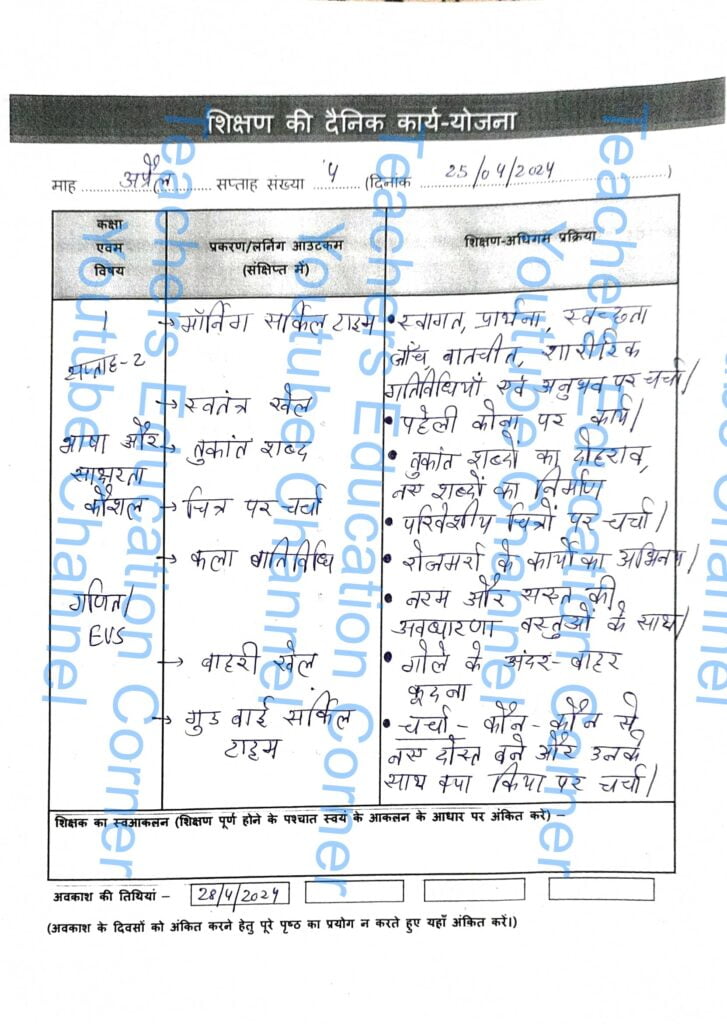 शिक्षण की दैनिक कार्य-योजना
माह अप्रैल सप्ताह संख्या 4 (दिनांक 25/04/2024)
कक्षा एवम विषय
प्रकरण/लर्निंग आउटकम (संक्षिप्त में)
शिक्षण-अधिगम प्रक्रिया
1
सप्ताह-2
भाषा और
साक्षरता
कौशल
गणित/
EVS
→ मॉर्निंग सर्किल टाइम
→ स्वतंत्र खेल
→ तुकांत शब्द
→ चित्र पर चर्चा
→ कला गतिविधि
→ बाहरी खेल
→ गुड बाई सर्किल
टाइम
• स्वागत, प्रार्थना, स्वच्छता
जाँच, बातचीत, शारीरिक
गतिविधियाँ एवं अनुभव पर चर्चा/
• पहेली कोना पर कार्य/
• तुकांत शब्दों का दोहराव,
नए शब्दों का निर्माण
• परिवेशीय चित्रों पर चर्चा/
• रोजमर्रा के कार्यों का अभिनय/
• नरम और सख्त की
अवधारणा वस्तुओं के साथ/
• गोले के अंदर-बाहर
कूदना
• चर्चा - कौन-कौन से
नए दोस्त बने और उनके
साथ क्या किया पर चर्चा/
शिक्षक का स्वआकलन (शिक्षण पूर्ण होने के पश्चात स्वयं के आकलन के आधार पर अंकित करें) –
अवकाश की तिथियां – 28/4/2024
(अवकाश के दिवसों को अंकित करने हेतु पूरे पृष्ठ का प्रयोग न करते हुए यहाँ अंकित करें।)
Teachers Education Corner
Youtube Channel
Teachers Education Corner
Youtube Channel
Teachers Education Corner
Youtube Channel